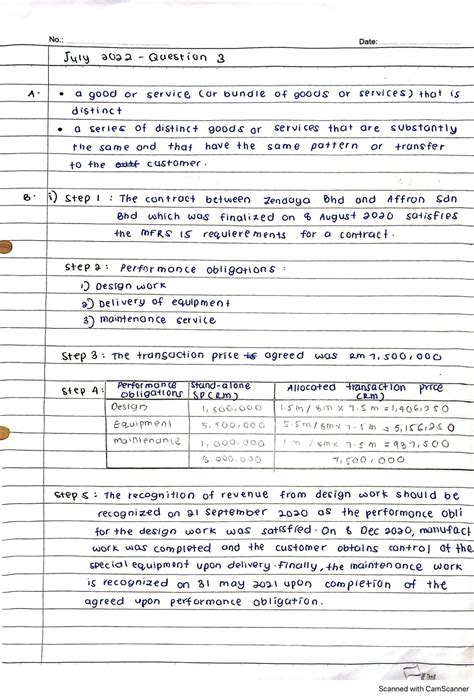 No.:
Date:
July 2022 - Question 3
A. • a good or service (or bundle of goods or services) that is
distinct
• a series of distinct goods or services that are substantly
the same and that have the same pattern or transfer
to the customer.
B. i) Step 1 : The contract between Zendaya Bhd and Affron Sdn
Bhd which was finalized on 8 August 2020 satisfies
the MFRS 15 requierements for a contract.
Step 2 : Performance obligations :
1) Design work
2) Delivery of equipment
3) maintenance service
Step 3 : The transaction price agreed was RM 7,500,000
Step 4 :
Performance obligations | Stand-alone SP (RM) | Allocated transaction price (RM)
Design | 1,500,000 | 1.5m / 8m x 7.5m = 1,406,250
Equipment | 5,500,000 | 5.5m / 8m x 7.5m = 5,156,250
maintenance | 1,000,000 | 1m / 8m x 7.5m = 937,500
8,000,000 | 7,500,000
Step 5 : The recognition of revenue from design work should be
recognized on 21 September 2020 as the performance obli
for the design work was satisfied. On 8 Dec 2020, manufact
work was completed and the customer obtains control of the
special equipment upon delivery. Finally, the maintenance work
is recognized on 31 may 2021 upon completion of the
agreed upon performance obligation.
Scanned with CamScanner